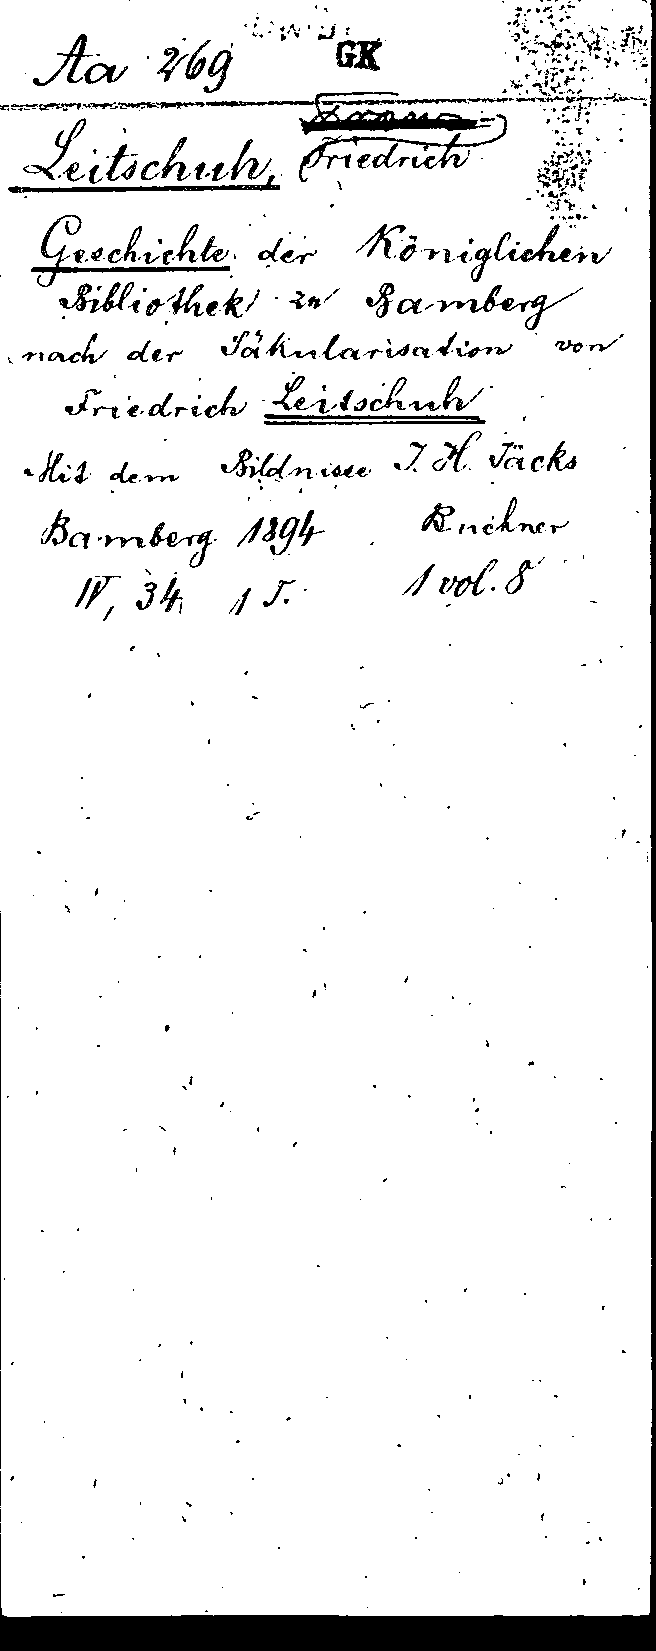 Aa 269 GK
Leitschuh, Friedrich
Geschichte der Königlichen
Bibliothek zu Bamberg
nach der Säkularisation von
Friedrich Leitschuh
Mit dem Bildnisse J. H. Jäcks
Bamberg 1894 Buchner
IV, 34, 1 T. 1 vol. 8